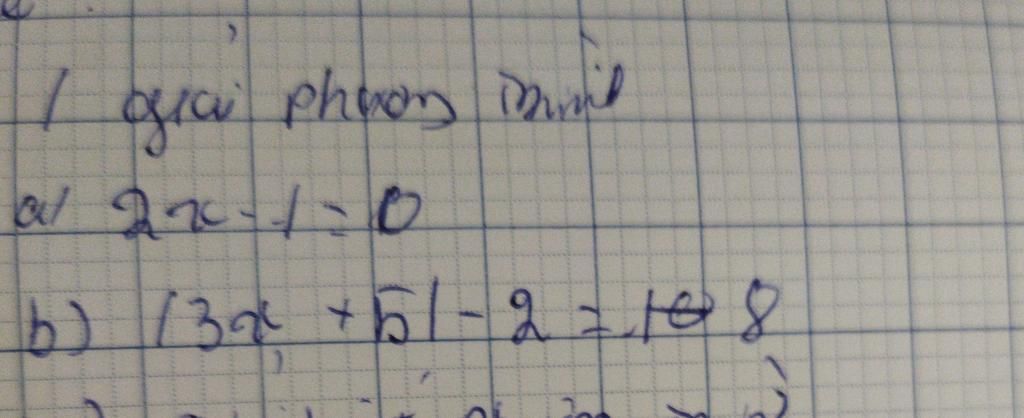 1 giải phương trình
a/ 2x - 1 = 0
b) |3x + 5| - 2 = 10 8